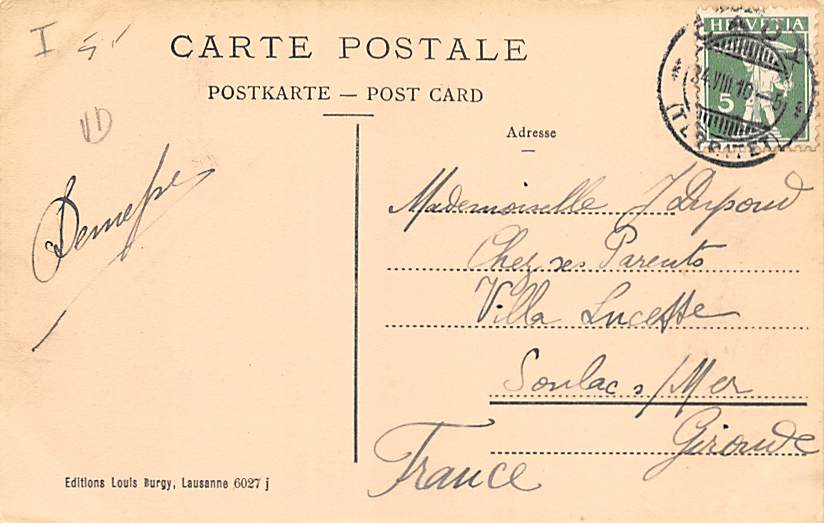 I
CARTE POSTALE
POSTKARTE — POST CARD
VD
Adresse
HELVETIA
5
24.VIII.10
Mademoiselle J Dupond
Chez ses Parents
Villa Lucette
Soulac s/Mer
Gironde
France
Editions Louis Burgy, Lausanne 6027 j